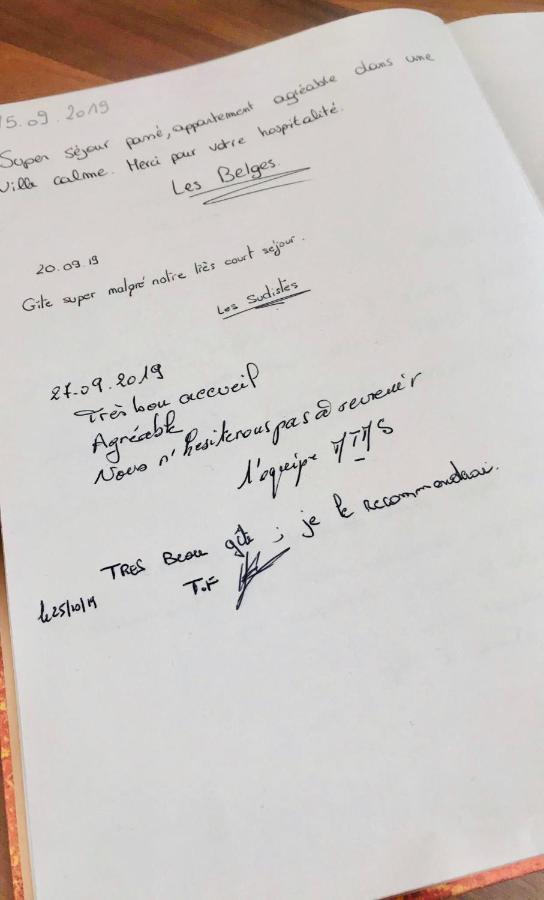 15.09.2019
Super séjour passé, appartement agréable dans une
ville calme. Merci pour votre hospitalité.
Les Belges.
20.09.19
Gîte super malgré notre très court séjour.
Les Sudistes
27.09.2019
Très bon accueil
Agréable
Nous n'hesiterons pas à revenir
l'equipe
TRES Beau gîte ; je le recommandrai.
le 25/10/19
T.F